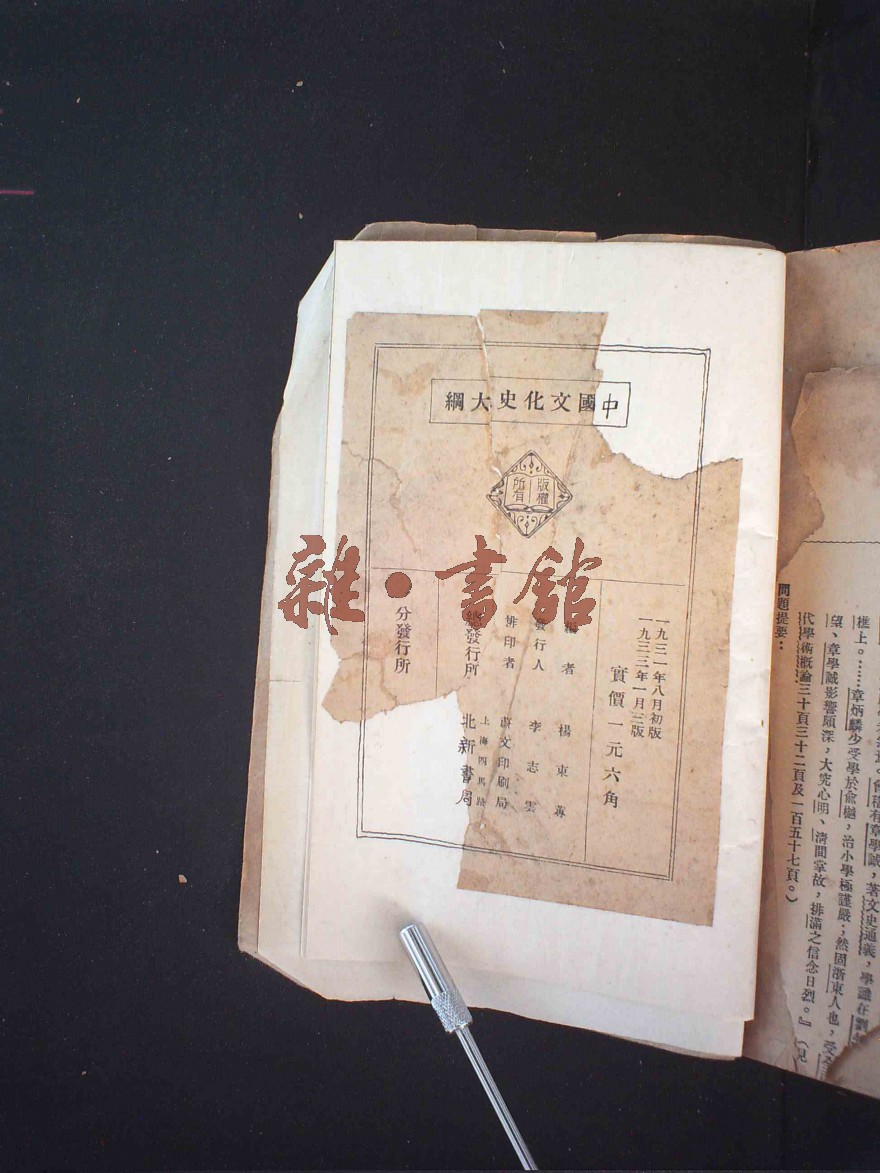 中國文化史大綱
版權
所有
一九三一年八月初版
一九三三年一月三版
實價一元六角
者 楊東蓴
發行人 李志雲
排印者 蔚文印刷局
發行所 上海四馬路
北新書局
分發行所
雜·書館
問題提要：
會稽有章學誠，著文史通義，學識在劉
框上。……章炳麟少受學於俞樾，治小學極謹嚴；然固浙東人也，受
望、章學誠影響頗深，大究心明、清間掌故，排滿之信念日烈。』（見
代學術概論三十頁三十二頁及一百五十七頁。）